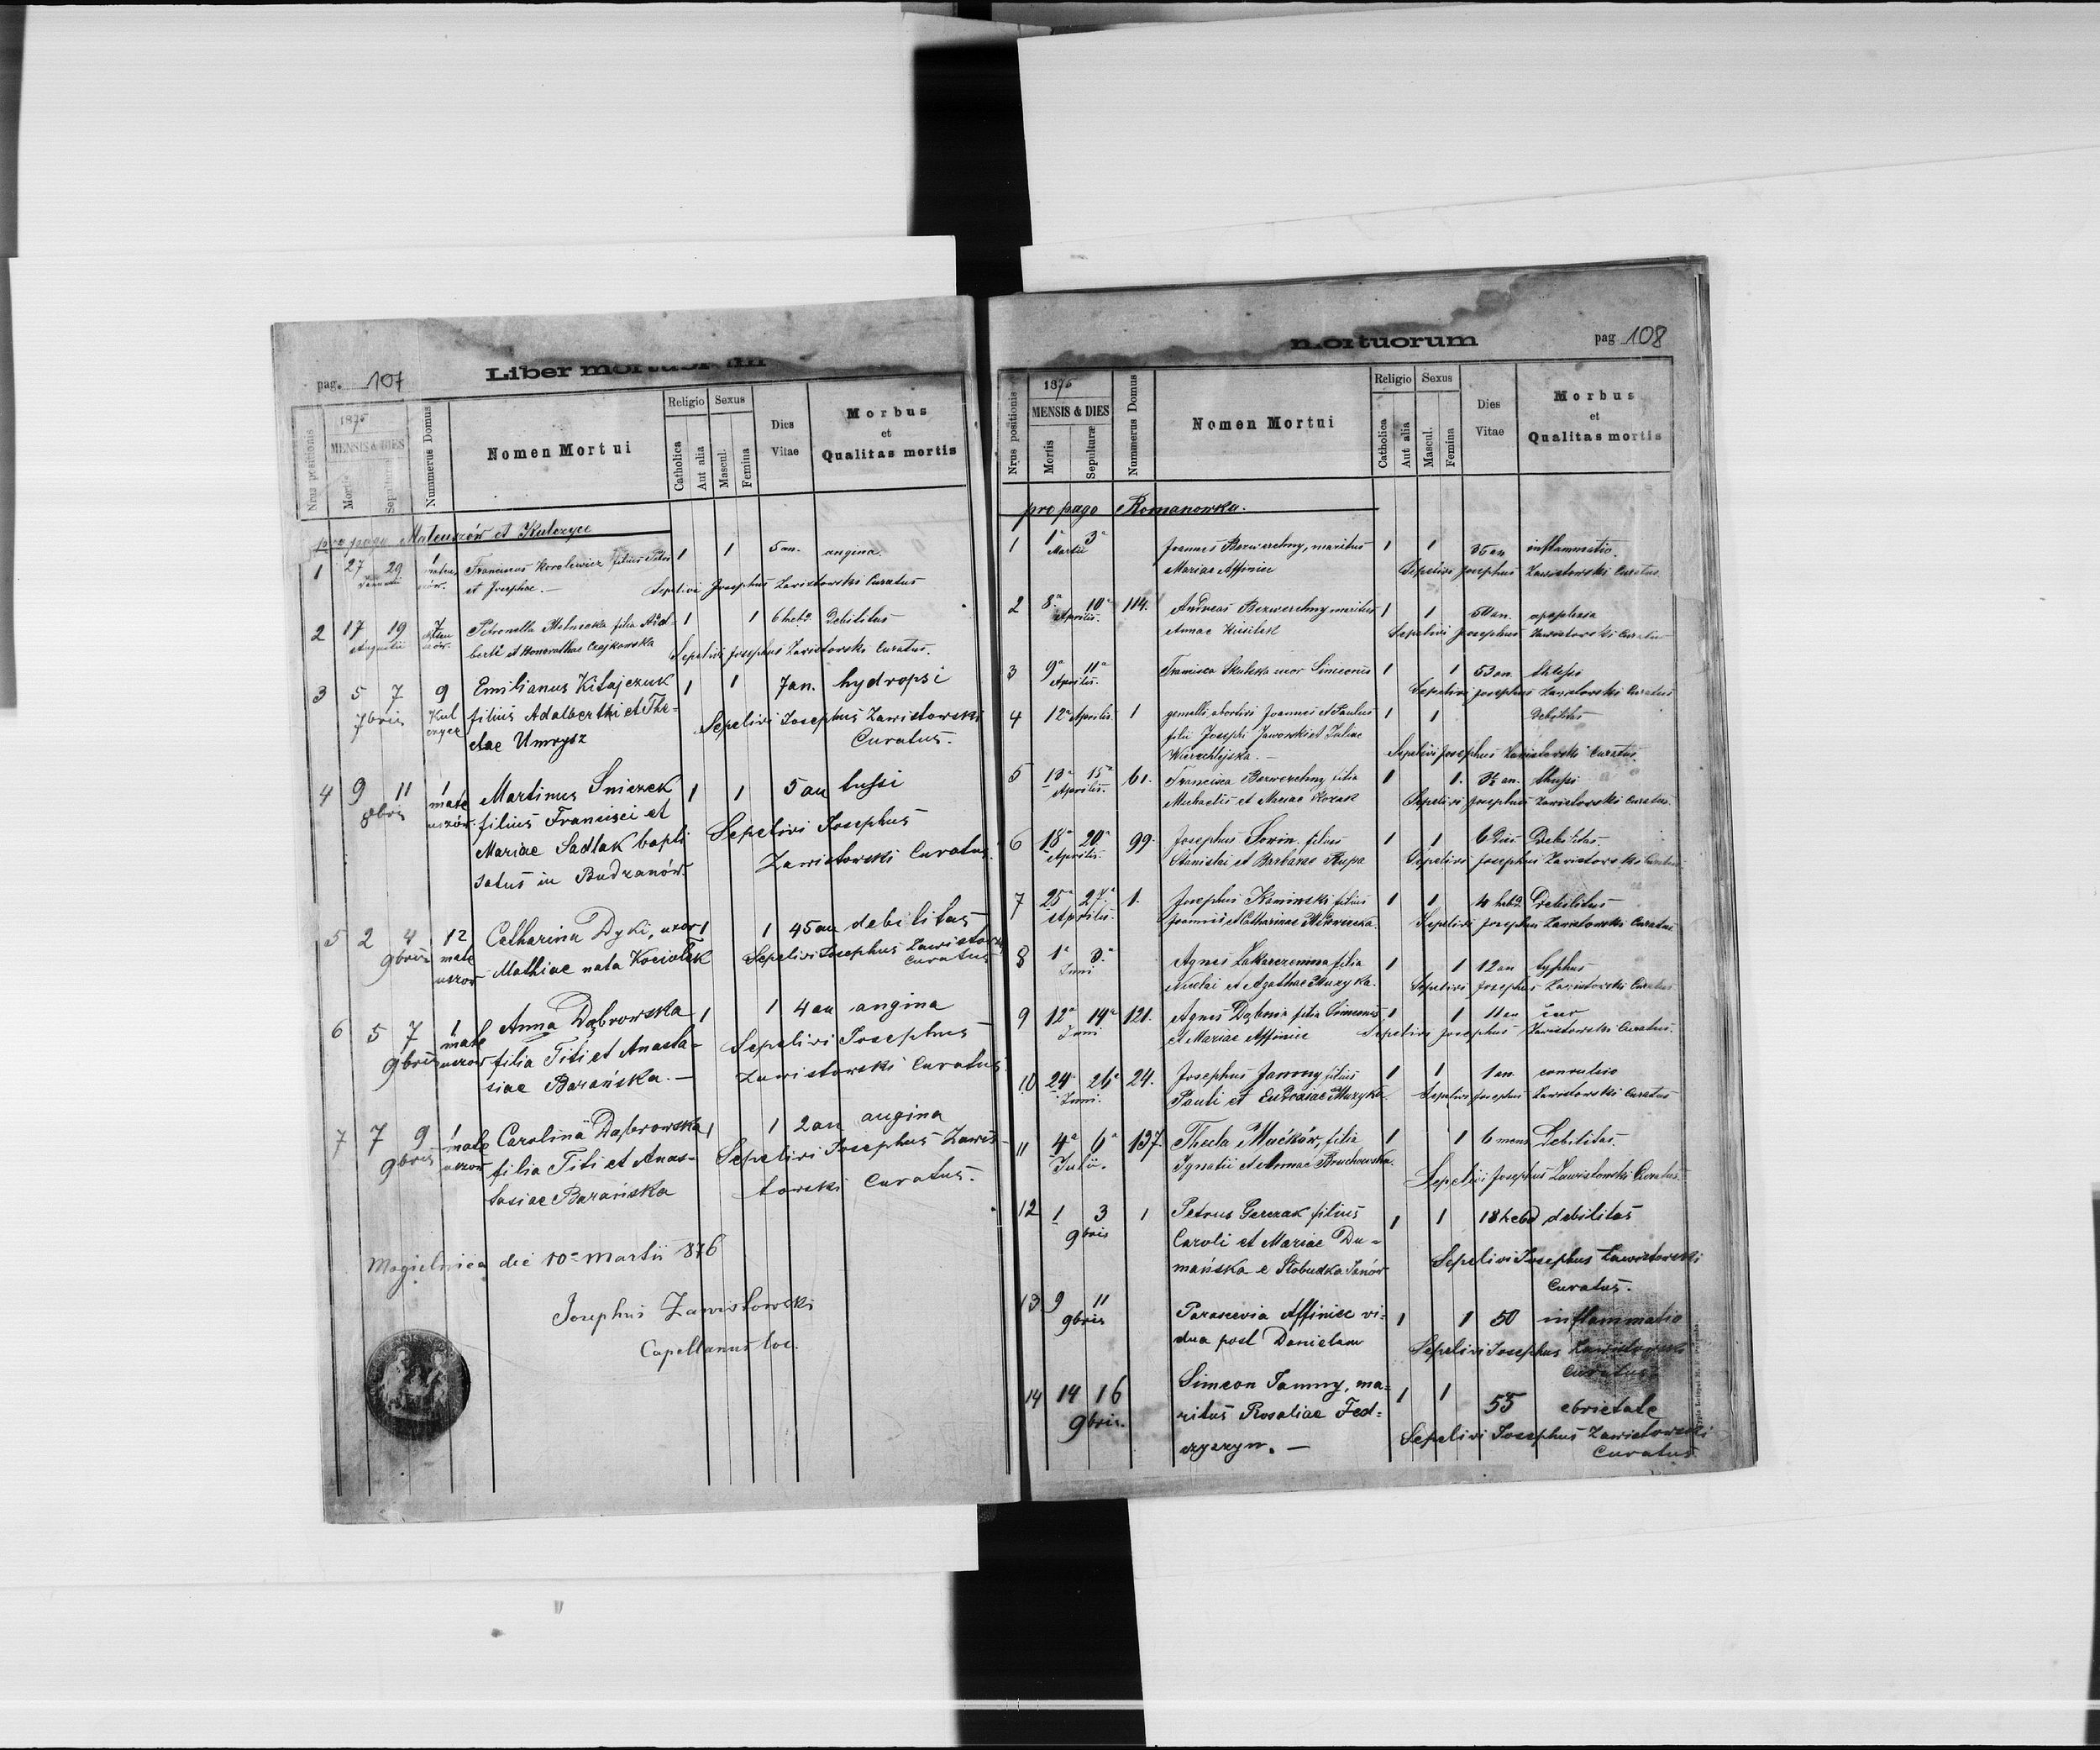 pag. 107
Liber mortuorum
Nrus positionis
1875
MENSIS & DIES
Mortis
Sepulturæ
Nummerus Domus
Nomen Mortui
Religio
Catholica
Aut alia
Sexus
Mascul.
Femina
Dies Vitae
Morbus et Qualitas mortis
pro pago Mateuszów et Kulczyce
1 27 29 1 Franciscus Korolewicz filius Petri 1 1 5 an. angina.
et Josephae. — Sepelivi Josephus Zawistowski Curatus
2 17 19 Petronella Melnicka filia Adal- 1 1 6 hebd. Debilitas
Augusti berti et Honorathae Czajkowska Sepelivi Josephus Zawistowski Curatus.
3 5 7 9 Emilianus Kitajczuk 1 1 7 an. hydropsi
7bris Kul filius Adalberthi et The- Sepelivi Josephus Zawistowski
czyce clae Umrysz Curatus.
4 9 11 1 Martinus Sniezek 1 1 5 an tussi
8bris mate filius Francisci et Sepelivi Josephus
uszów. Mariae Sadlak bapti Zawistowski Curatus.
satus in Budzanów.
5 2 4 12 Catharina Dyki, uxor 1 1 45 an debilitas
9bris mate Mathiae nata Kociołek Sepelivi Josephus Zawistowski
uszów Curatus
6 5 7 1 Anna Dąbrowska 1 1 4 an angina
9bris mate filia Titi et Anasta- Sepelivi Josephus
uszów siae Barańska. — Zawistowski Curatus
7 7 9 1 Carolina Dąbrowska 1 1 2 an angina
9bris mate filia Titi et Anas- Sepelivi Josephus Zawis-
uszów tasiae Barańska towski Curatus.
Mogielnica die 10a martii 876
Josephus Zawistowski
Capellanus loc.
mortuorum
pag 108
Nrus positionis
1875
MENSIS & DIES
Mortis
Sepulturæ
Nummerus Domus
Nomen Mortui
Religio
Catholica
Aut alia
Sexus
Mascul.
Femina
Dies Vitae
Morbus et Qualitas mortis
pro pago Romanowka.
1 1a 3a Joannes Bezwerchny, maritus 1 1 35 an inflammatio.
Martii Mariae Affinice Sepelivi Josephus Zawistowski Curatus.
2 8a 10a 114. Andreas Bezwerchny maritus 1 1 50 an. apoplexia
Aprilis. Annae Sepelivi Josephus Zawistowski Curatus
3 9a 11a Francisca Skulska uxor Simeonis 1 1 53 an.
Aprilis. Sepelivi Josephus Zawistowski Curatus
4 12a Aprilis. 1 gemelli abortivi Joannes et Paulus 1 1 Debilitas
filii Josephi Jaworski et Juliae
Sepelivi Josephus Zawistowski Curatus.
5 13a 15a 61. Francisca Bezwerchny filia 1 1.
Aprilis. Michaelis et Mariae Kozak Sepelivi Josephus Zawistowski Curatus.
6 18a 20a 99. Josephus Sowin filius 1 1 6 Debilitas.
Aprilis. Stanislai et Barbarae Rupa Sepelivi Josephus Zawistowski Curatus
7 25a 27a 1. Josephus Kaminski filius 1 1 4 hebd. Debilitas
Aprilis. Joannis et Catharinae Sepelivi Josephus Zawistowski Curatus
8 1a 3a Agnes filia 1 1 12 an typhus
Juni Nicolai et Agathae Muzyka. Sepelivi Josephus Zawistowski Curatus
9 12a 14a 121. Agnes filia Simeonis 1 1 11 an
Juni et Mariae Affinice Sepelivi Josephus Zawistowski Curatus.
10 24 26a 24. Josephus Jammy filius 1 1 1 an convulsio
Juni. Pauli et Eudoxiae Muzyka. Sepelivi Josephus Zawistowski Curatus
11 4a 6a 137 Thecla Maćków, filia 1 1 6 mens. Debilitas.
Julii. Ignatii et Annae Bruchowska. Sepelivi Josephus Zawistowski Curatus.
12 1 3 1 Petrus Gerczak filius 1 1 18 hebd debilitas
9bris Caroli et Mariae Du-
mańska e Słobudka Janów Sepelivi Josephus Zawistowski
Curatus.
13 9 11 Parascevia Affinice vi- 1 1 50 inflammatio
9bris dua post Danielam Sepelivi Josephus Zawistowski
Curatus
14 14 16 Simeon Jammy, ma- 1 1 55 ebrietate
9bris. ritus Rosaliae Fed- Sepelivi Josephus Zawistowski
czyszyn. — Curatus